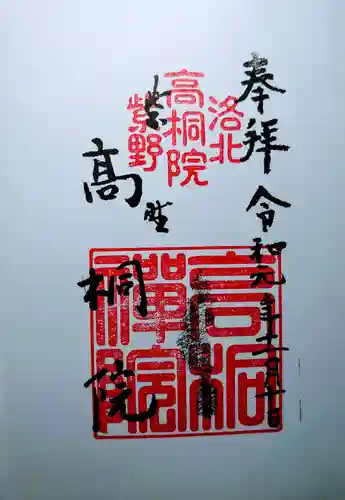 奉拝
令和元年十二月十日
洛北
高桐院
紫野
紫野
高桐院
高桐禅院